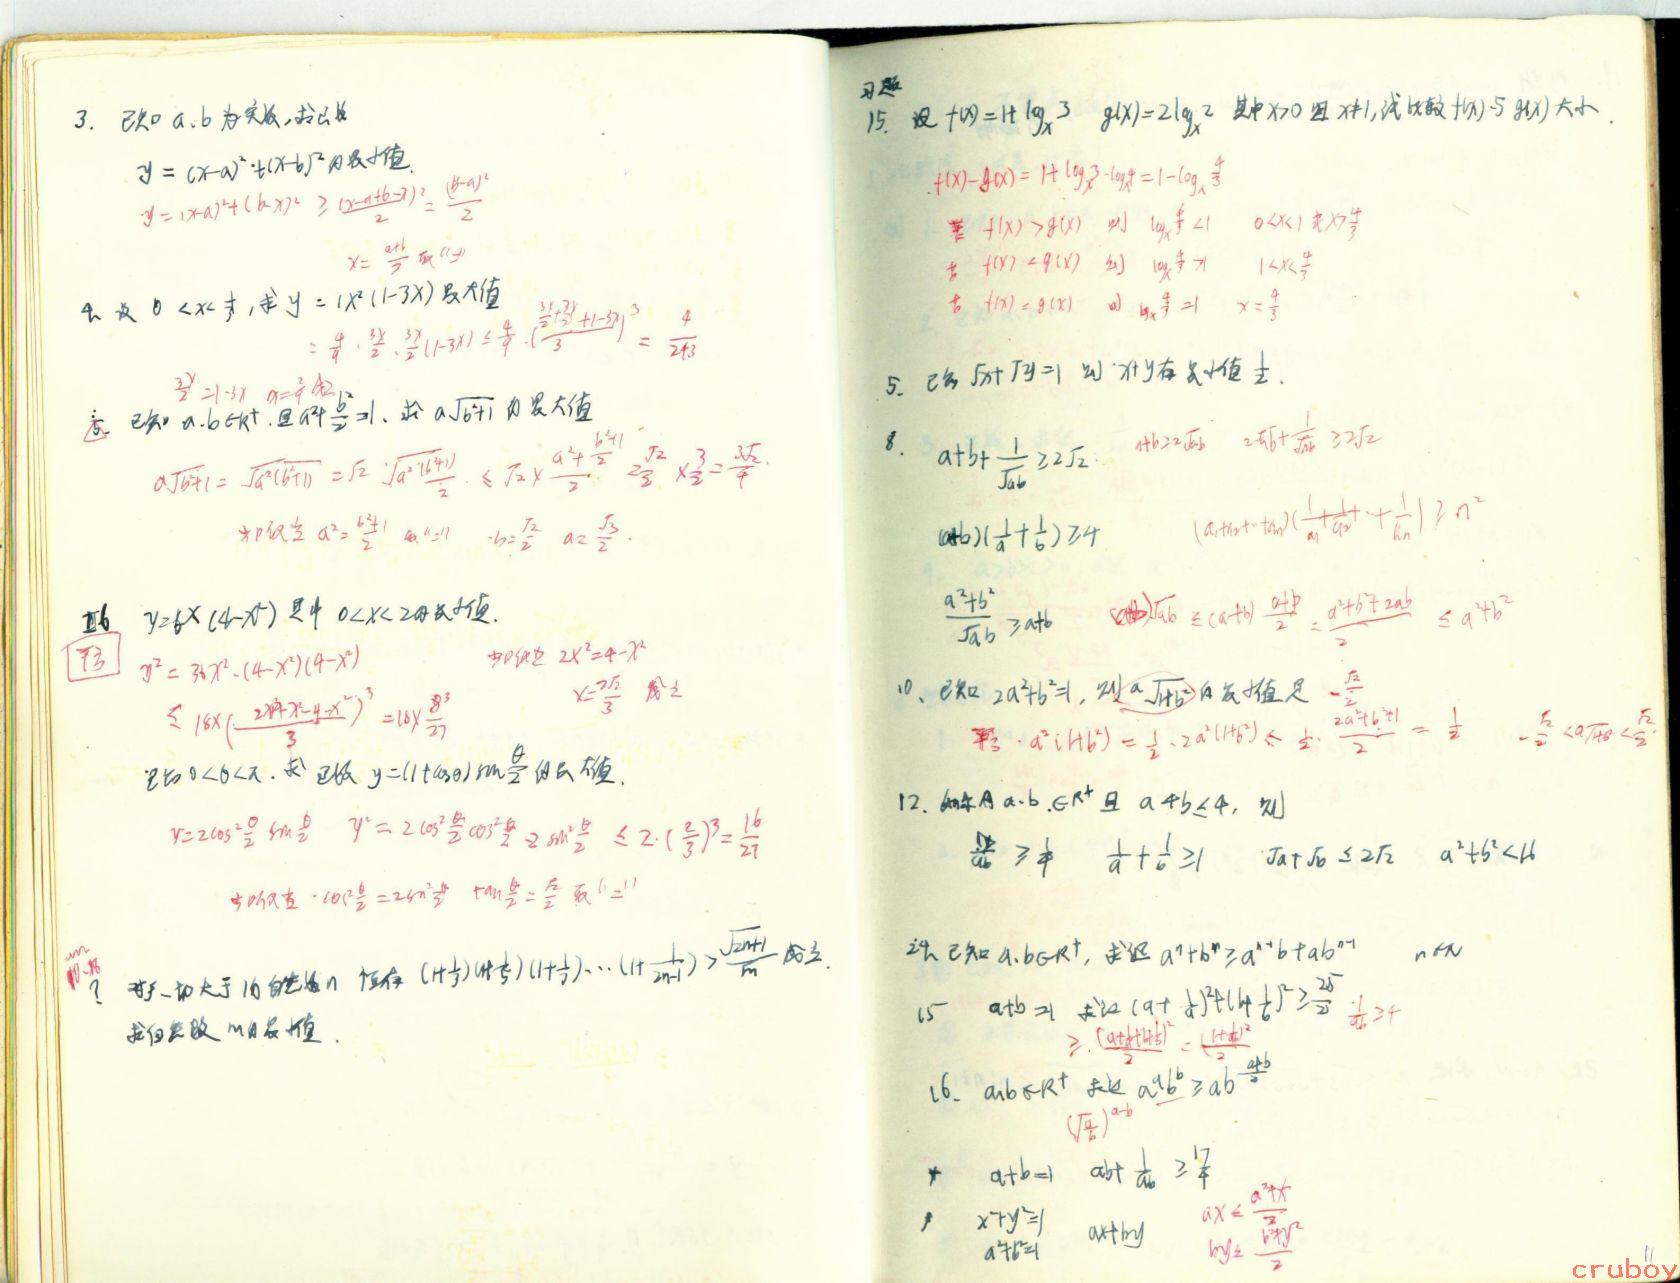 3. 已知 a.b 为实数,求函数
y = (x-a)²+(x-b)² 的最小值.
y = (x-a)²+(b-x)² ≥ (x-a+b-x)²/2 = (b-a)²/2
x = (a+b)/2 取"="
4. 设 0<x<1/3, 求 y = x²(1-3x) 最大值
= 4/9 · 3x/2 · 3x/2 (1-3x) ≤ 4/9 · ((3x/2+3x/2+1-3x)/3)³ = 4/243
3x/2 = 1-3x
5. 已知 a.b∈R⁺ 且 a²+b²/2=1, 求 a√(b²+1) 的最大值
a√(b²+1) = √(a²(b²+1)) = √2 √(a²(b²+1)/2) ≤ √2 × (a²+(b²+1)/2)/2 = √2/2 × 3/2 = 3√2/4.
当且仅当 a² = (b²+1)/2 取"=" b=√2/2 a=√3/2.
6 y=6x(4-x²) 其中 0<x<2的最大值.
平方
y² = 36x²·(4-x²)(4-x²)
当且仅当 2x²=4-x²
≤ 18×( /3)³ = 18×8³/27
x=2√3/3 成立
已知 0<θ<π. 求函数 y=(1+cosθ)sin θ/2 的最大值.
y=2cos²θ/2 sin θ/2 y²=2cos²θ/2 cos²θ/2 2sin²θ/2 ≤ 2·(2/3)³ = 16/27
当且仅当 · cos²θ/2 = 2sin²θ/2 tan θ/2 = √2/2 取"="
?
对于一切大于1的自然数n 恒有 (1+1/3)(1+1/5)(1+1/7)···(1+1/(2n-1)) > √(2n+1)/m 成立.
求自然数 m的最小值.
习题
15. 设 f(x)=1+logₓ3 g(x)=2logₓ2 其中x>0 且 x≠1, 试比较 f(x)与g(x) 大小.
f(x)-g(x) = 1+logₓ3-logₓ4 = 1-logₓ4/3
若 f(x)>g(x) 则 logₓ4/3<1 0<x<1 或 x>4/3
若 f(x)<g(x) 则 logₓ4/3>1 1<x<4/3
若 f(x)=g(x) 则 logₓ4/3=1 x=4/3
5. 已知 √x+√y=1 则 x+y有最小值 1/2.
8. a+b+1/√ab ≥2√2. a+b≥2√ab 2√ab+1/√ab ≥2√2
(a+b)(1/a+1/b)≥4 (a₁+a₂+···+aₙ)(1/a₁+1/a₂+···+1/aₙ) ≥ n²
(a²+b²)/√ab ≥a+b (a+b)√ab ≤ (a+b)(a+b)/2 = (a²+b²+2ab)/2 ≤ a²+b²
10、已知 2a²+b²=1, 则 a√(1+b²) 的最小值是 -√2/2
平方 · a²(1+b²) = 1/2 · 2a²(1+b²) ≤ 1/2 · (2a²+b²+1)/2 = 1/2 -√2/2 < a√(1+b²) < √2/2.
12. 如果 a.b.∈R⁺ 且 a+b≤4, 则
1/ab ≥ 1/4 1/a+1/b ≥1 √a+√b ≤2√2 a²+b²<16
已知 a.b∈R⁺, 求证 aⁿ+bⁿ≥aⁿ⁻¹b+abⁿ⁻¹ n∈N
15 a+b=1 求证 (a+1/a)²+(b+1/b)² ≥ 25/2 1/ab ≥4
≥ (a+1/a+b+1/b)²/2 = (1+1/ab)²/2
16. a.b∈R⁺ 求证 aᵃbᵇ ≥ab^((a+b)/2)
(√(a/b))^(a-b)
a+b=1 ab+1/ab ≥17/4
x²+y²=1
a²+b²=1
ax+by
ax ≤ (a²+x²)/2
by ≤ (b²+y²)/2
11
cruboy